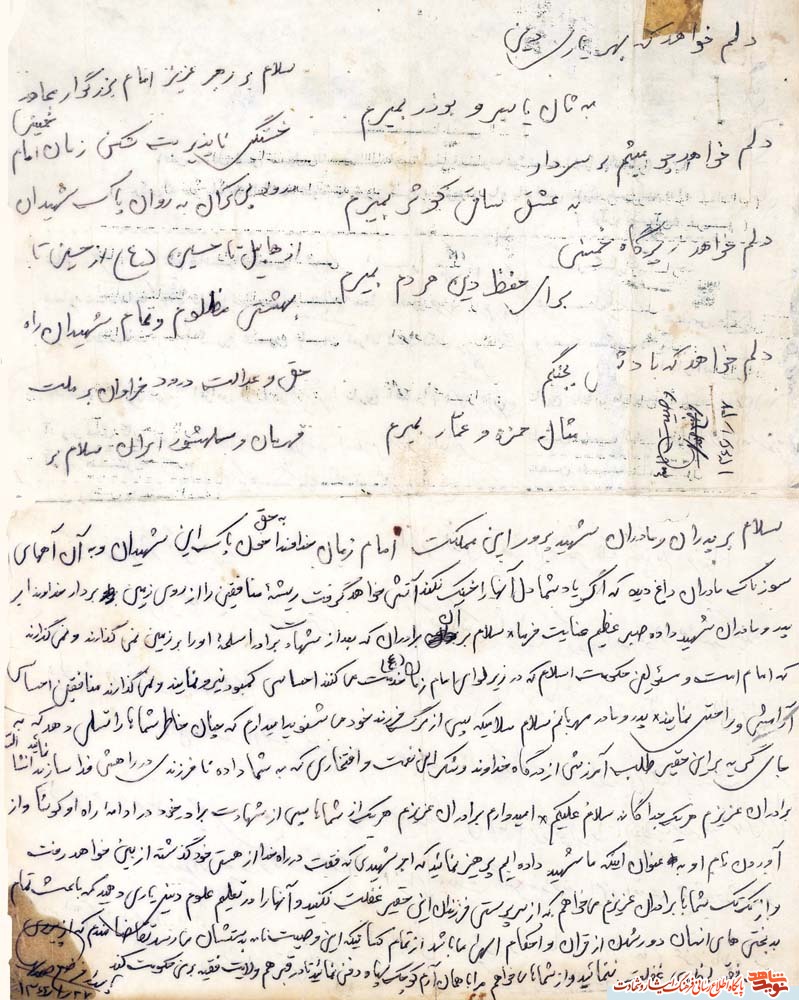 دلم خواهد که بهر یاری دین
به مثال یاسر و بوذر بمیرم
دلم خواهد چو میثم بر سر دار
به عشق ساقی کوثر بمیرم
دلم خواهد زیر گاه خمینی
برای حفظ دین مردم بمیرم
دلم خواهد که با دشمن بجنگم
مثال حمزه و عمار بمیرم
سلام بر رهبر عزیز امام بزرگوار مجاهد
خستگی ناپذیر بت شکن زمان امام خمینی
درود بی کران به روان پاک شهیدان
از هابیل تا حسین (ع) از حسین تا
بهشتی مظلوم و تمام شهیدان راه
حق و عدالت درود فراوان بر ملت
قهرمان و سلحشور ایران سلام بر
سلام بر پدران و مادران شهید پرور این مملکت امام زمان خداوندا به حق خون پاک این شهیدان و به آن آههای
سوزناک مادران داغ دیده که اگر یاد شما دل آنها را خنک نکند آتش خواهد گرفت ریشه منافقین را از روی زمین بردار خداوندا بر
پدر و مادران شهید داده صبر عظیم عنایت فرما سلام بر آن برادران که بعد از شهادت برادر اسلحه او را بر زمین نمی گذارند و نمی گذارند
که امام امت و مسئولین حکومت اسلام که در زیر لوای امام زمان (ع) خدمت می کنند احساس کمبود نیرو نمایند و نمی گذارند منافقین احساس
آرامش و راحتی نمایند پدر و مادر مهربانم سلام سلامیکه پس از مرگ فرزند خود می شنوید امیدارم که چنان خاطر شما را تسلی دهد که به
جای گریه بر این حقیر طلب آمرزش از درگاه خداوند و شکر این نعمت و افتخاری که به شما داده تا فرزندی در راهش فدا سازند نمائید انشا الله
برادران عزیزم هر یک جداگانه سلام علیکم امیدوارم برادران عزیزم هر یک از شما پس از شهادت برادر خود در ادامه راه او کوشا و از
آوردن نام او به عنوان اینکه ما شهید داده ایم پرهیز نمائید که اجر شهیدی که فقط در راه خدا از هستی خود گذشته از بین خواهد رفت
و از تک تک شما برادران عزیزم می خواهم که از سرپرستی فرزندان این حقیر غفلت نکنید و آنها را در تعلیم علوم دینی یاری دهید که باعث تمام
بدبختی های انسان دور شدن از قرآن و احکام اسلام می باشد از تمام کسانیکه این وصیت نامه به دستشان می رسد تقاضا مندم که از پیروی
ولایت فقیه غفلت ننمائید و از شما می خواهم مرا با همان آرم کوچک سپاه دفن نمائید تا در قبر هم ولایت فقیه بر من حکومت کند
نوید شاهد
پایگاه اطلاع رسانی فرهنگ ایثار و شهادت